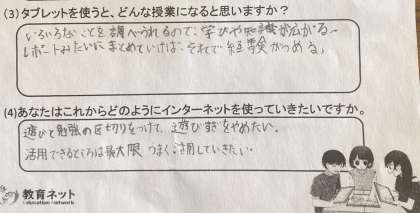 (3)タブレットを使うと、どんな授業になると思いますか?
いろいろなことを調べられるので、学びや知識が広がる。
レポートみたいにまとめていけば、それで経験がつめる。
(4)あなたはこれからどのようにインターネットを使っていきたいですか。
遊びと勉強の区切りをつけて、遊びすぎをやめたい。
活用できるところは最大限うまく活用していきたい。
教育ネット
education network